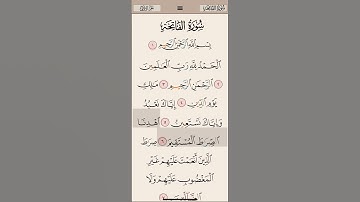 سُورَةُ الفَاتِحَةِ
سُورَةُ الفَاتِحَةِ
بِسْمِ ٱللَّهِ ٱلرَّحْمَٰنِ ٱلرَّحِيمِ ١
ٱلْحَمْدُ لِلَّهِ رَبِّ ٱلْعَٰلَمِينَ
٢ ٱلرَّحْمَٰنِ ٱلرَّحِيمِ ٣ مَٰلِكِ
يَوْمِ ٱلدِّينِ ٤ إِيَّاكَ نَعْبُدُ
وَإِيَّاكَ نَسْتَعِينُ ٥ ٱهْدِنَا
ٱلصِّرَٰطَ ٱلْمُسْتَقِيمَ ٦ صِرَٰطَ
ٱلَّذِينَ أَنْعَمْتَ عَلَيْهِمْ غَيْرِ
ٱلْمَغْضُوبِ عَلَيْهِمْ وَلَا
ٱلضَّآلِّينَ ٧